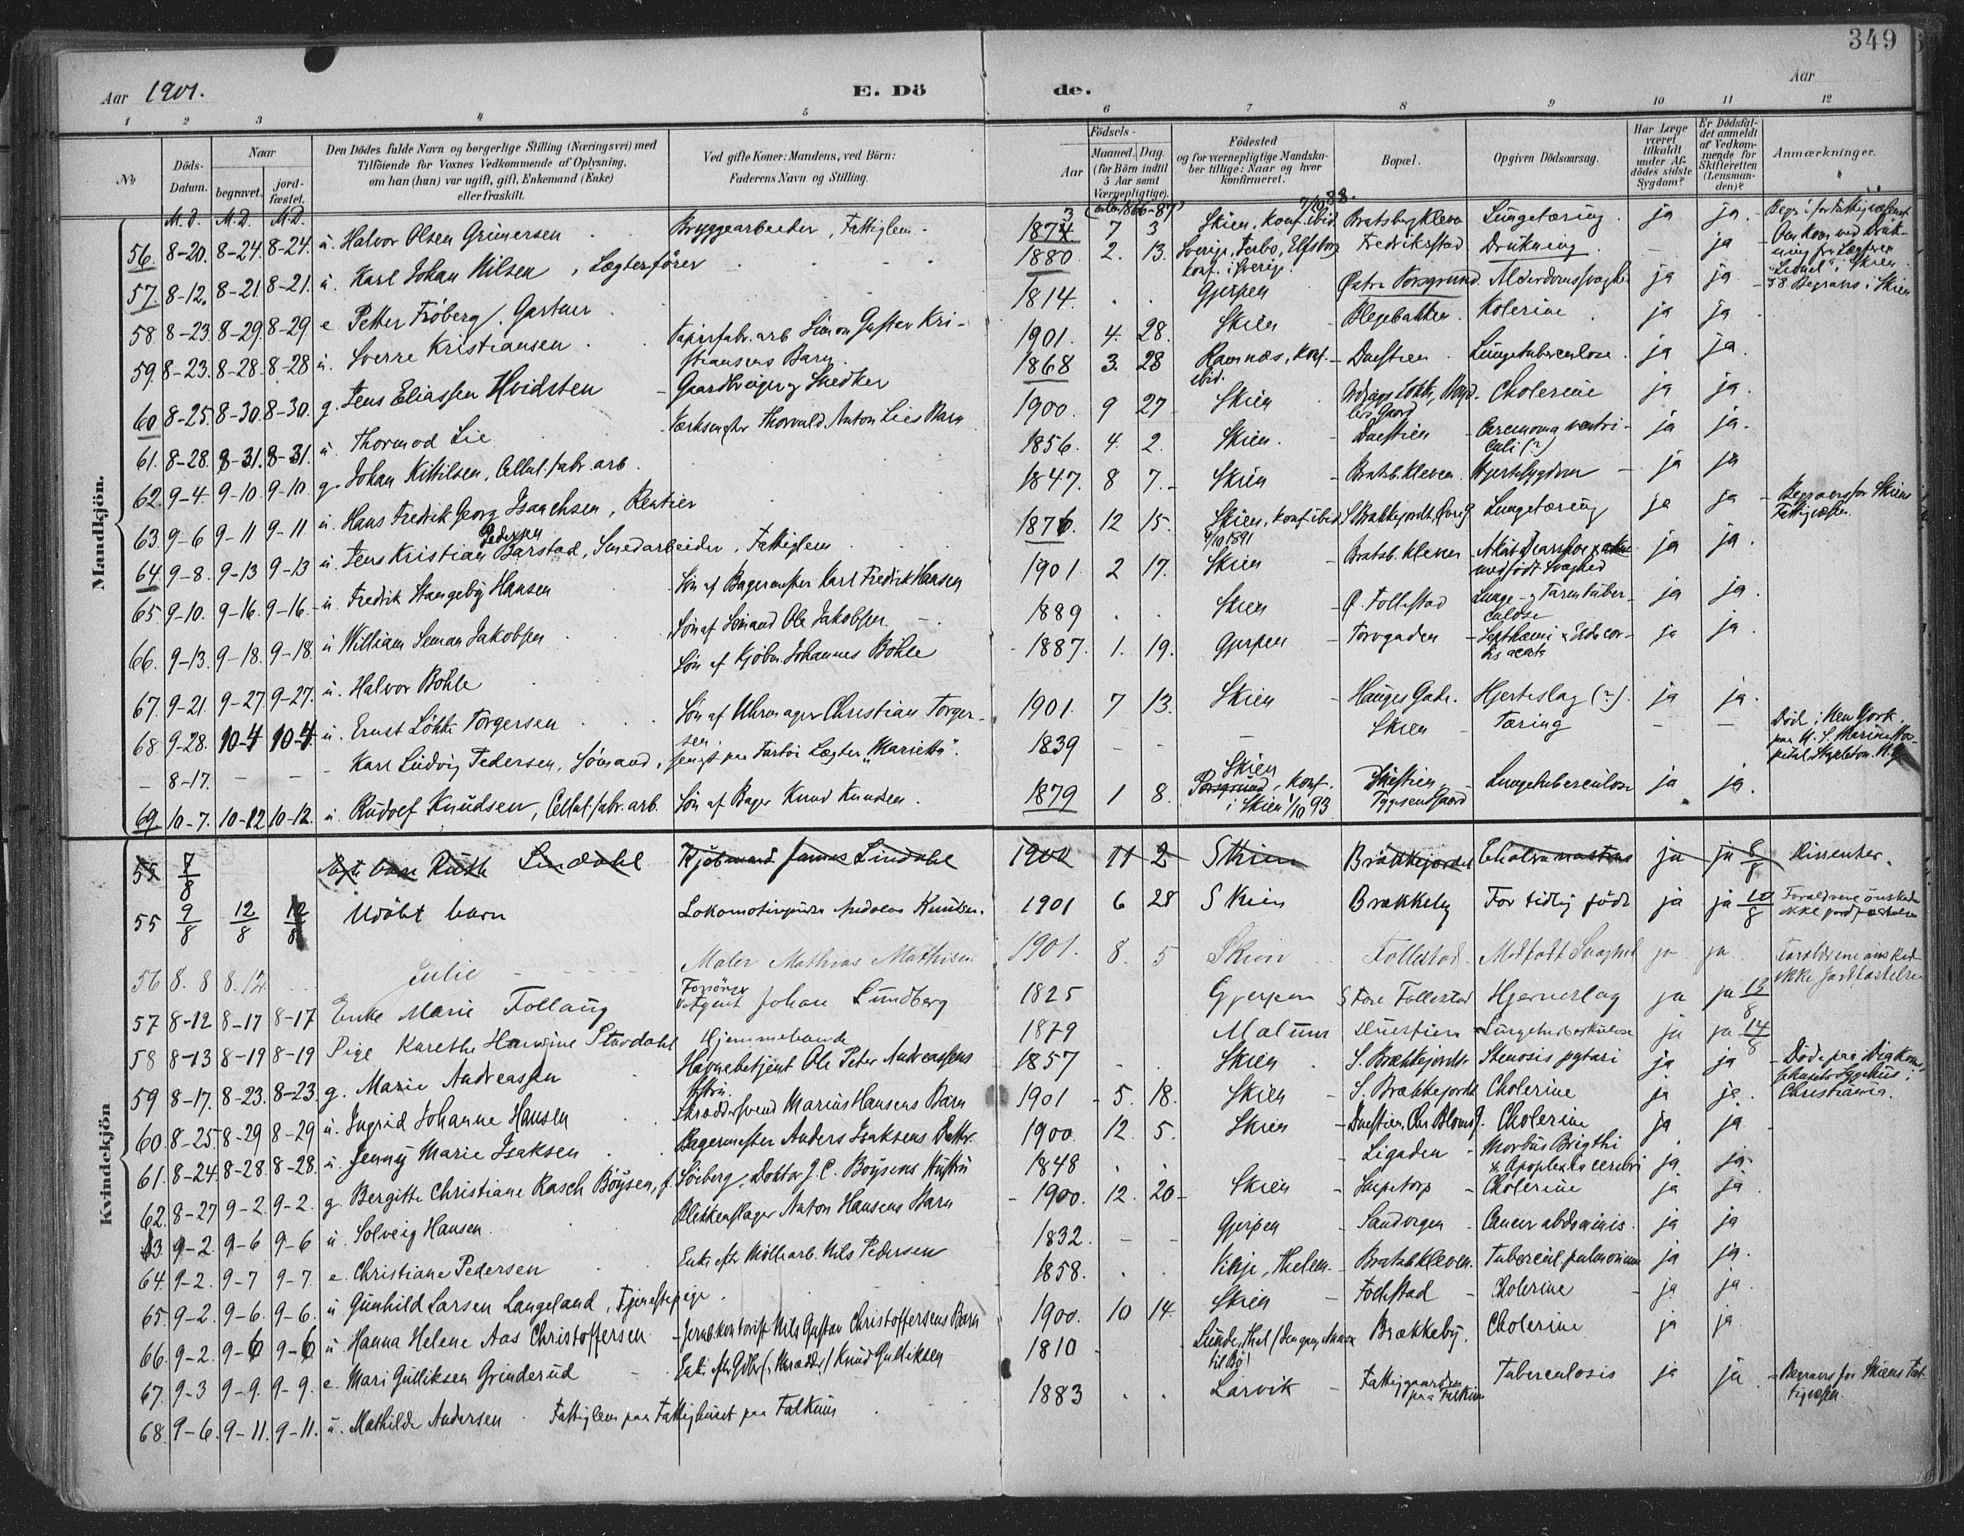 349
Aar 1901.
E. Dö de.
Aar
1 2 3 4 5 6 7 8 9 10 11 12
No
Döds-Datum.
Naar
begravet.
jord-fæstet.
Den Dödes fulde Navn og borgerlige Stilling (Næringsvei) med
Tilföiende for Voxnes Vedkommende af Oplysning,
om han (hun) var ugift, gift, Enkemand (Enke)
eller fraskilt.
Ved gifte Koner: Mandens, ved Börn:
Faderens Navn og Stilling.
Födsels-
Aar
Maaned. Dag.
(for Börn indtil
5 Aar samt
Værnepligtige).
Födested
og for værnepligtige Mandska-
ber tillige: Naar og hvor
konfirmeret.
Bopæl.
Opgiven Dödsaarsag.
Har Læge
været
tilkaldt
under Af-
dödes sidste
Sygdom?
Er Dödsfal-
det anmeldt
af Vedkom-
mende for
Skifteretten
(Lensman-
den)?
Anmærkninger.
M. D. M. D. M. D.
Mandkjön.
56 8-20. 8-24. 8-24. u. Halvor Olsen Grinersen Bryggearbeider, Fattiglem. 1873 7 3 Skien, Konf. ibid. Bratsbergkleven Lungetæring ja ja.
57. 8-12. 8-21. 8-21. u. Karl Johan Nilsen, Lægterförer 1880 2. 13. Sverige Fredriksstad Drukning – ja
58. 8-23. 8-29. 8-29 e. Petter Fröberg, Gartner 1814 Gjerpen Østre Porsgrund Alderdomssvaghed ja ja
59. 8-23. 8-28. 8-28 u. Sverre Kristiansen Papirfabr. arb. Simon Gustav Kri-
stiansens Barn. 1901. 4. 28. Skien Blegebakken Kolerine ja ja
60 8-25. 8-30. 8-30. g. Jens Eliassen Hvidsten Gaardbruger og Snedker 1868 3. 28 Ramnæs, Konf.
ibid. Duestien Lungetuberculose ja ja.
61. 8-28. 8-31. 8-31. u. Thormod Lie Thorvald Anton Lies Barn 1900. 9 27 Skien Cholerine ja ja.
62. 9-4. 9-10. 9-10. g. Johan Kittilsen, Cellul. fabr. arb. 1856. 4. 2. Skien. Duestien ja ja.
63. 9-6 9-11 9-11 u. Hans Fredrik Georg Isachsen, Rentier 1847. 8 7. Skien Bratsb. kleven. Hjertesygdom ja ja
64 9-8. 9-13 9-13 u. Jens Kristian Pedersen Barstad, Smedarbeider, Fattiglem 1876. 12 15. Skien, Konf. ibid.
4/10 1891 Lungetæring ja ja Begraves for Skiens
65 9-10. 9-16. 9-16. u. Fredrik Stangeby Hansen Sön af Bagermester Karl Fredrik Hansen 1901 2 17. Skien Bratsb. kleven
medfödt Svaghed ja ja.
66. 9-13. 9-18. 9-18. u William Leman Jakobsen Sön af Sömand Ole Jakobsen 1889 Skien Ö. Follestad Lunge- og Tarmtuber-
culose ja ja.
67. 9-21. 9-27. 9-27. u. Halvor Böhle Sön af Kjöbm. Johannes Böhle 1887. 1. 19. Gjerpen Torvgaden ja ja.
68 9-28. 10-4 10-4 u. Ernst Lökke Torgersen Sön af Uhrmager Christian Torger-
sen 1901. 7 13. Skien Hauges Gade. Hjerteslag (?) ja ja.
– 8-17. – – – Karl Ludvig Pedersen, Sömand, 1839 – – – Skien Tæring – – Död i New York
69 10-7. 10-12 10-12. u. Rudolf Knudsen, Cellul. fabr. arb. Sön af Bager Knud Knudsen. 1879 1 8. Skien Porsgrund, Konf.
i Skien 1/10 93 Lungetuberculose ja ja.
Kvindekjön
55 7/8 Ruth Lindahl Kjöbmand James Lindahl 1900 11 2 Skien Brækkejordet ja ja 8/8 Dissenter.
55 9/8 12/8 12/8 Udöbt barn 1901 6 28 Skien Brækkeby For tidlig födt ja ja 10/8 Forældrene önskede
ikke jordfæstelse
56 8. 8 8. 12 Julie Maler Mathias Mathisen 1901. 8. 5 Skien Follestad Medfödt Svaghed ja ja Forældrene önskede
ikke Jordfæstelse
57 8-12 8-17 8-17 Enke Marie Follaug Agent Johan Lundberg 1825 Gjerpen Store Follestad Hjerneslag ja ja 13/8
58 8-13 8-19 8-19 Pige Karethe Hansine Stordahl Hjemmeværende 1879 Solum Duestien Lungetuberkulose ja ja 14/8
59 8-17. 8-23. 8-23. g. Marie Andreassen Havnebetjent Ole Peter Andreassens
Hustru. 1857 Skien S. Brækkejordet Stenosis pylori ja ja Döde paa Rigshos-
Christiania.
60. 8-25. 8-29 8-29 u. Ingrid Johanne Hansen Skræddersvend Marius Hansens Barn 1901 5. 18. Skien S. Brækkejordet Cholerine ja ja.
61. 8-24. 8-28. 8-28. u. Jenny Marie Isaksen Bagermester Anders Isaksens Datter. 1900. 12. 5. Skien Duestien Cholerine ja ja
62. 8-27 9-2. 9-2. g. Bergitte Christiane Rasch Böysen, f. Söiberg, Doktor J. C. Böysens Hustru 1848 Ligaden Morbus Brigthi
& Apoplexia cerebri ja ja
63 9-2. 9-6 9-6 u. Solveig Hansen. Blikkenslager Anton Hansens Barn 1900. 12. 20 Skien Cholerine ja ja
64. 9-2. 9-7 9-7 e. Christiane Pedersen Enke efter Möllearb. Nils Pedersen 1832. – – Gjerpen Sandvegen Cancer abdominis. ja ja
65. 9-2. 9-6. 9-6. u Gunhild Larsen Langeland, Tjenestepige. 1858. Vinje, Thelem. Bratsb.kleven. Tubercul. pulmonum ja ja.
66. 9-2. 9-6 9-6 u Hanna Helene Aas Christoffersen Nils Gustav Christoffersens Barn 1900. 10 14. Skien Follestad Cholerine ja ja.
67. 9-3 9-9. 9-9. e. Mari Gulliksen Grinderud Knud Gulliksen 1810 Lunde, Thel.
til Bö! Brækkeby. Cholerine ja ja.
68. 9-6. 9-11. 9-11. u. Mathilde Andersen Fattiglem paa Fattighuset paa Falkum 1883 Larvik Fattiggaarden
paa Falkum Tuberculosis ja ja. Begraves for Skiens Fat-